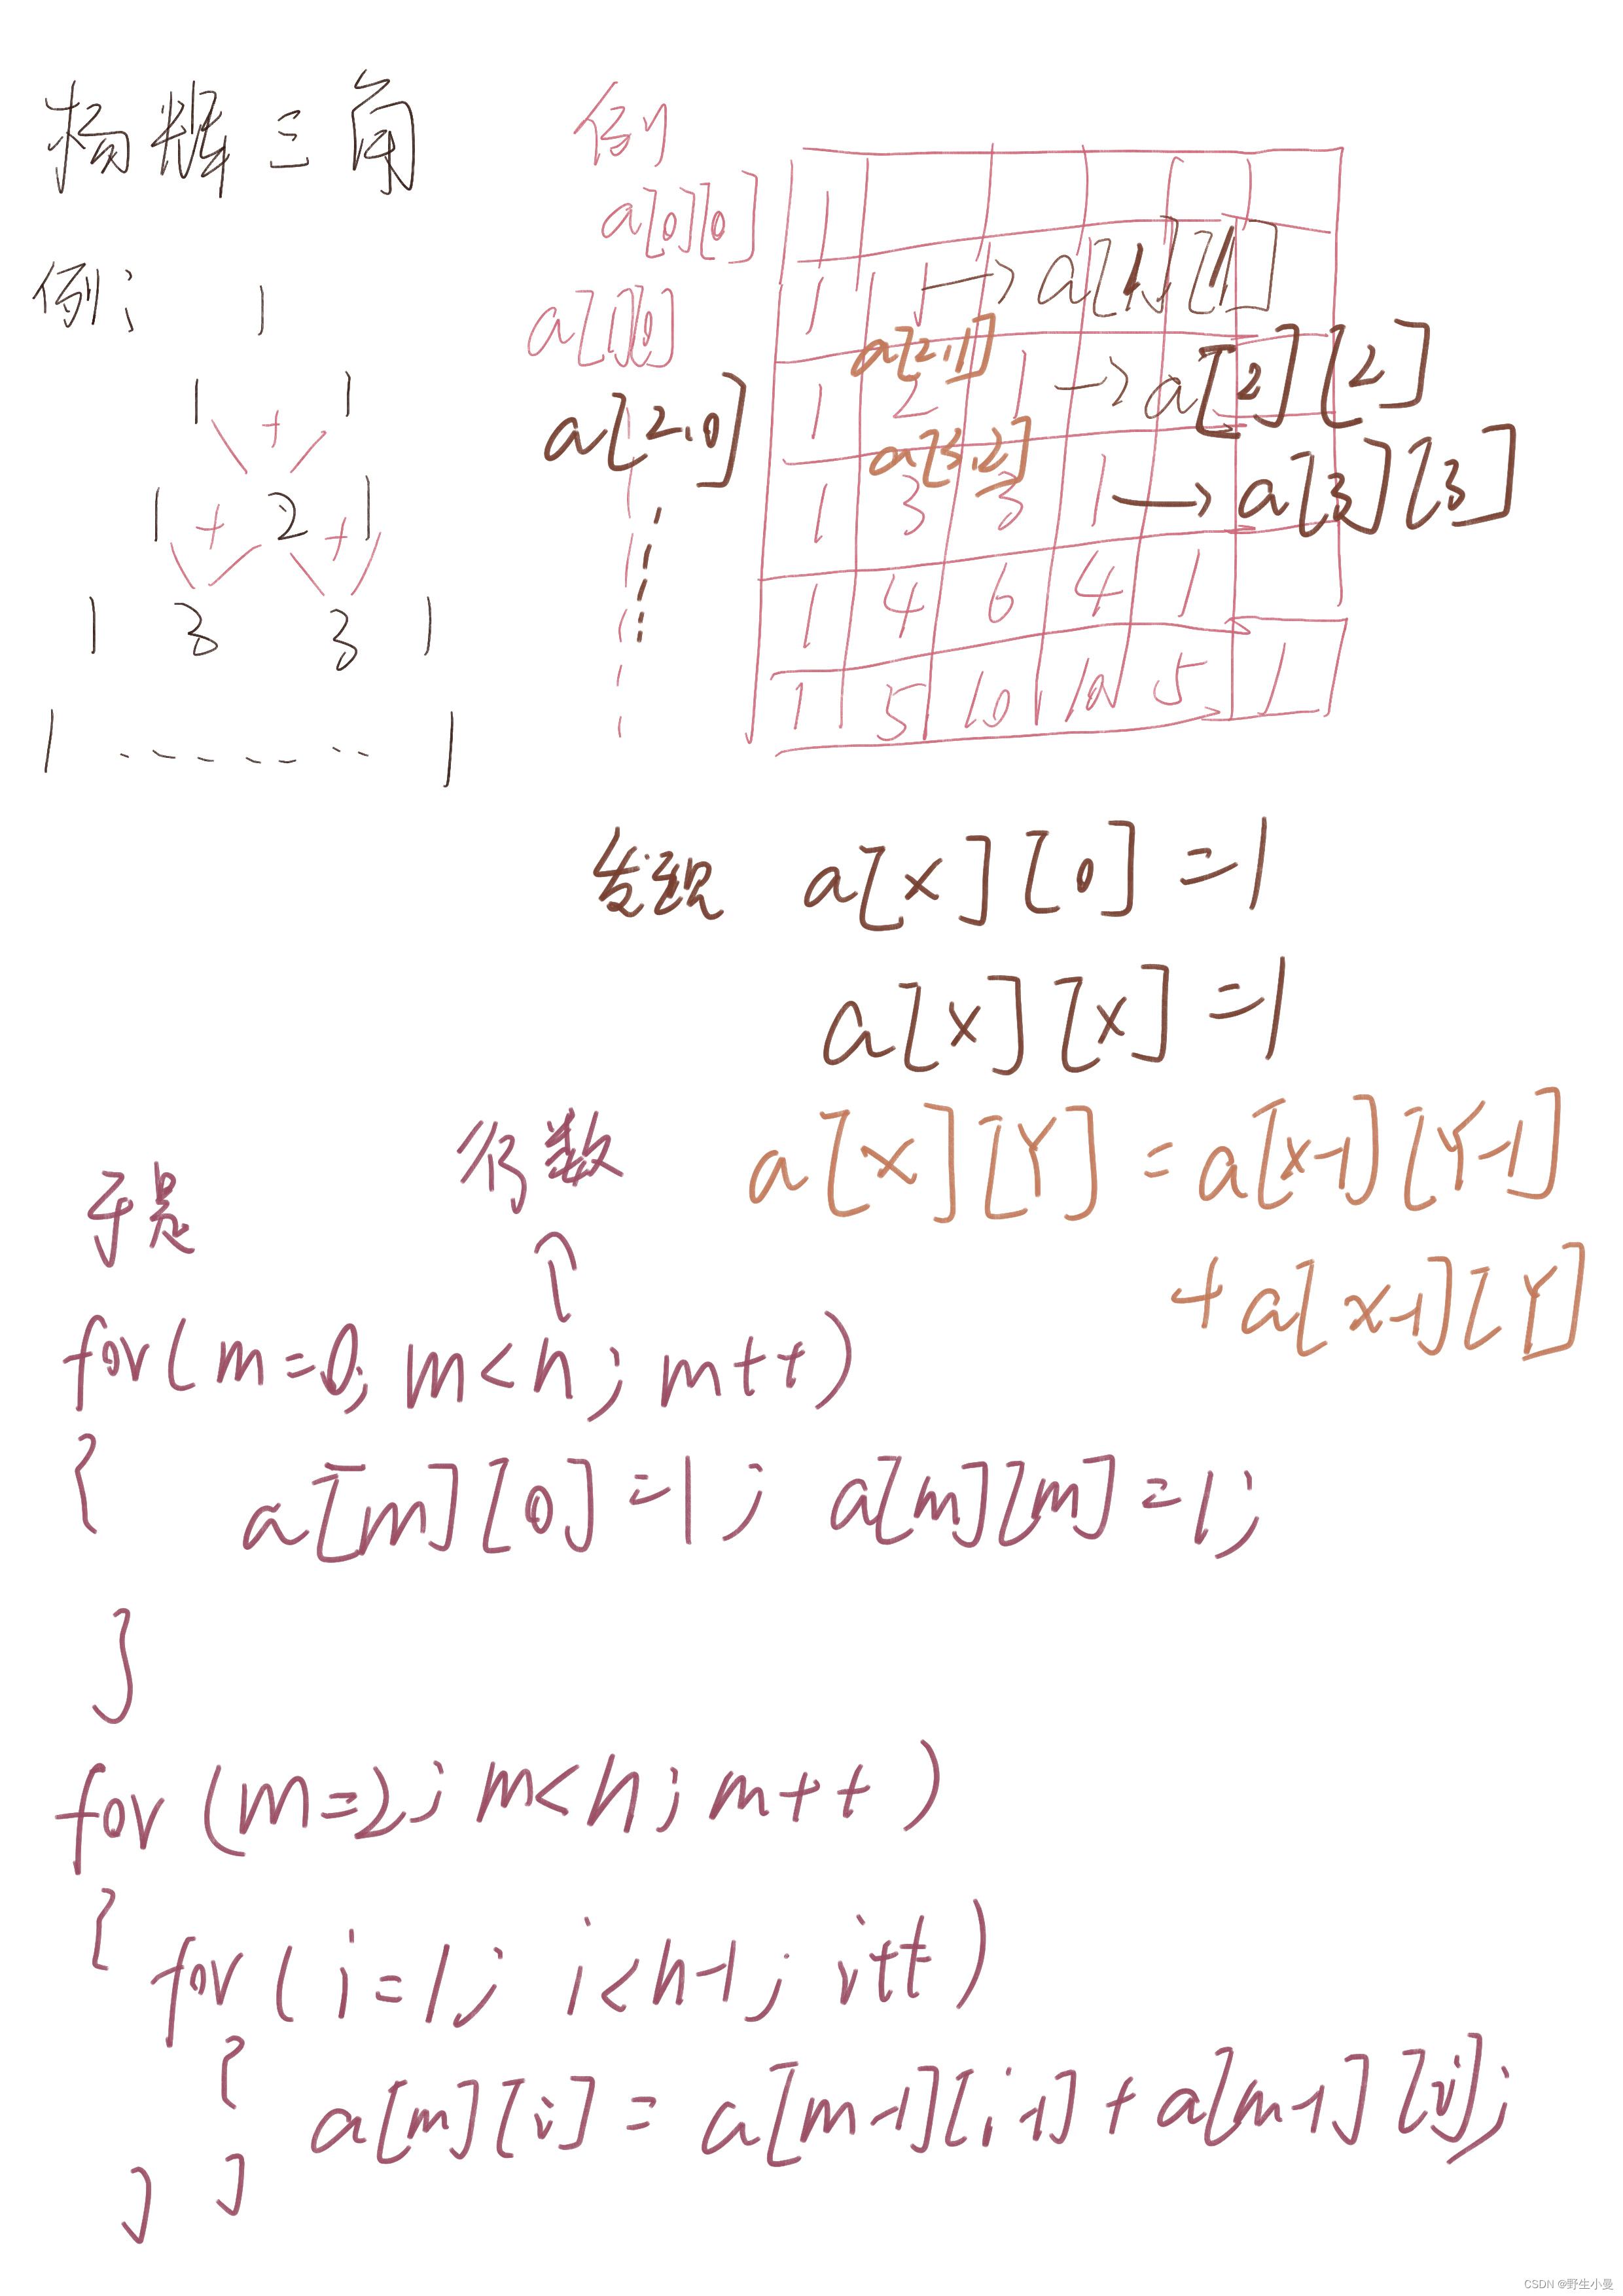 杨辉三角
例:
1
1 + 1
1 + 2 + 1
1 3 3 1
1 ........ 1
例
a[0][0]
a[1][0]
a[2.0]
1
1 1 → a[1][1]
a[2.1]
1 2 1 → a[2][2]
a[3.2]
1 3 3 1 → a[3][3]
1 4 6 4 1
1 5 10 10 5 1
发现 a[x][0]=1
a[x][x]=1
a[x][Y]=a[x-1][Y-1]
+a[x-1][Y]
于是
行数
↑
for(m=0;m<n;m++)
{ a[m][0]=1; a[m][m]=1;
}
for(m=2;m<n;m++)
{ for(i=1;i<n-1;i++)
{ a[m][i]=a[m-1][i-1]+a[m-1][i];
} }
CSDN @野生小曼